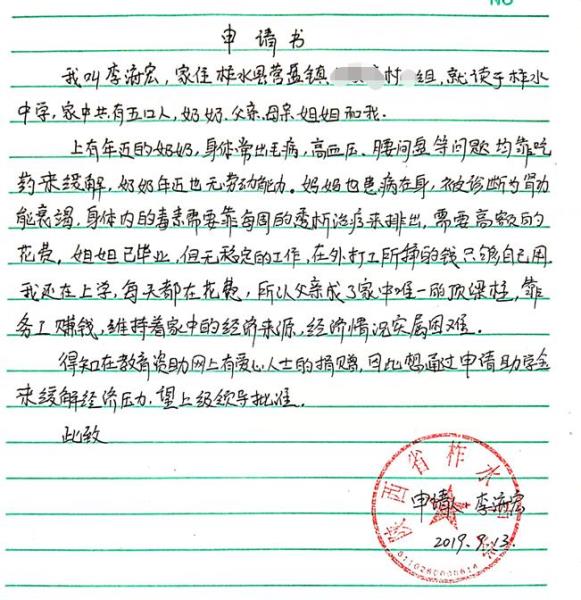 NO
申请书
我叫李海宏，家住柞水县营盘镇村组，就读于柞水
中学，家中共有五口人，奶奶、父亲、母亲、姐姐和我。
上有年迈的奶奶，身体常出毛病，高血压、腰间盘等问题均靠吃
药来缓解，奶奶年迈也无劳动能力。妈妈也患病在身，被诊断为肾功
能衰竭，身体内的毒素需要靠每周的透析治疗来排出，需要高额的
花费。姐姐已毕业，但无稳定的工作，在外打工所挣的钱只够自己用。
我还在上学，每天都在花费，所以父亲成了家中唯一的顶梁柱，靠
务工赚钱，维持着家中的经济来源，经济情况实属困难。
得知在教育资助网上有爱心人士的捐赠，因此想通过申请助学金
来缓解经济压力，望上级领导批准。
此致
陕西省柞水
申请人 李海宏
2019.9.3